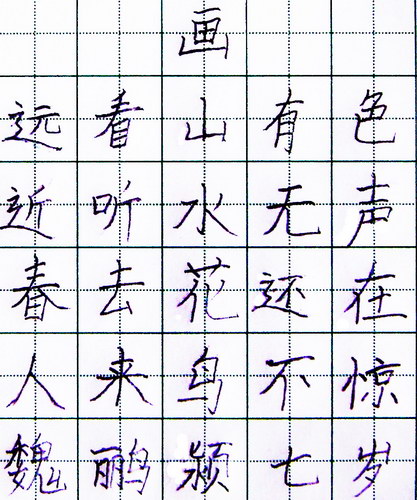 画
远看山有色
近听水无声
春去花还在
人来鸟不惊
魏鹂颍七岁